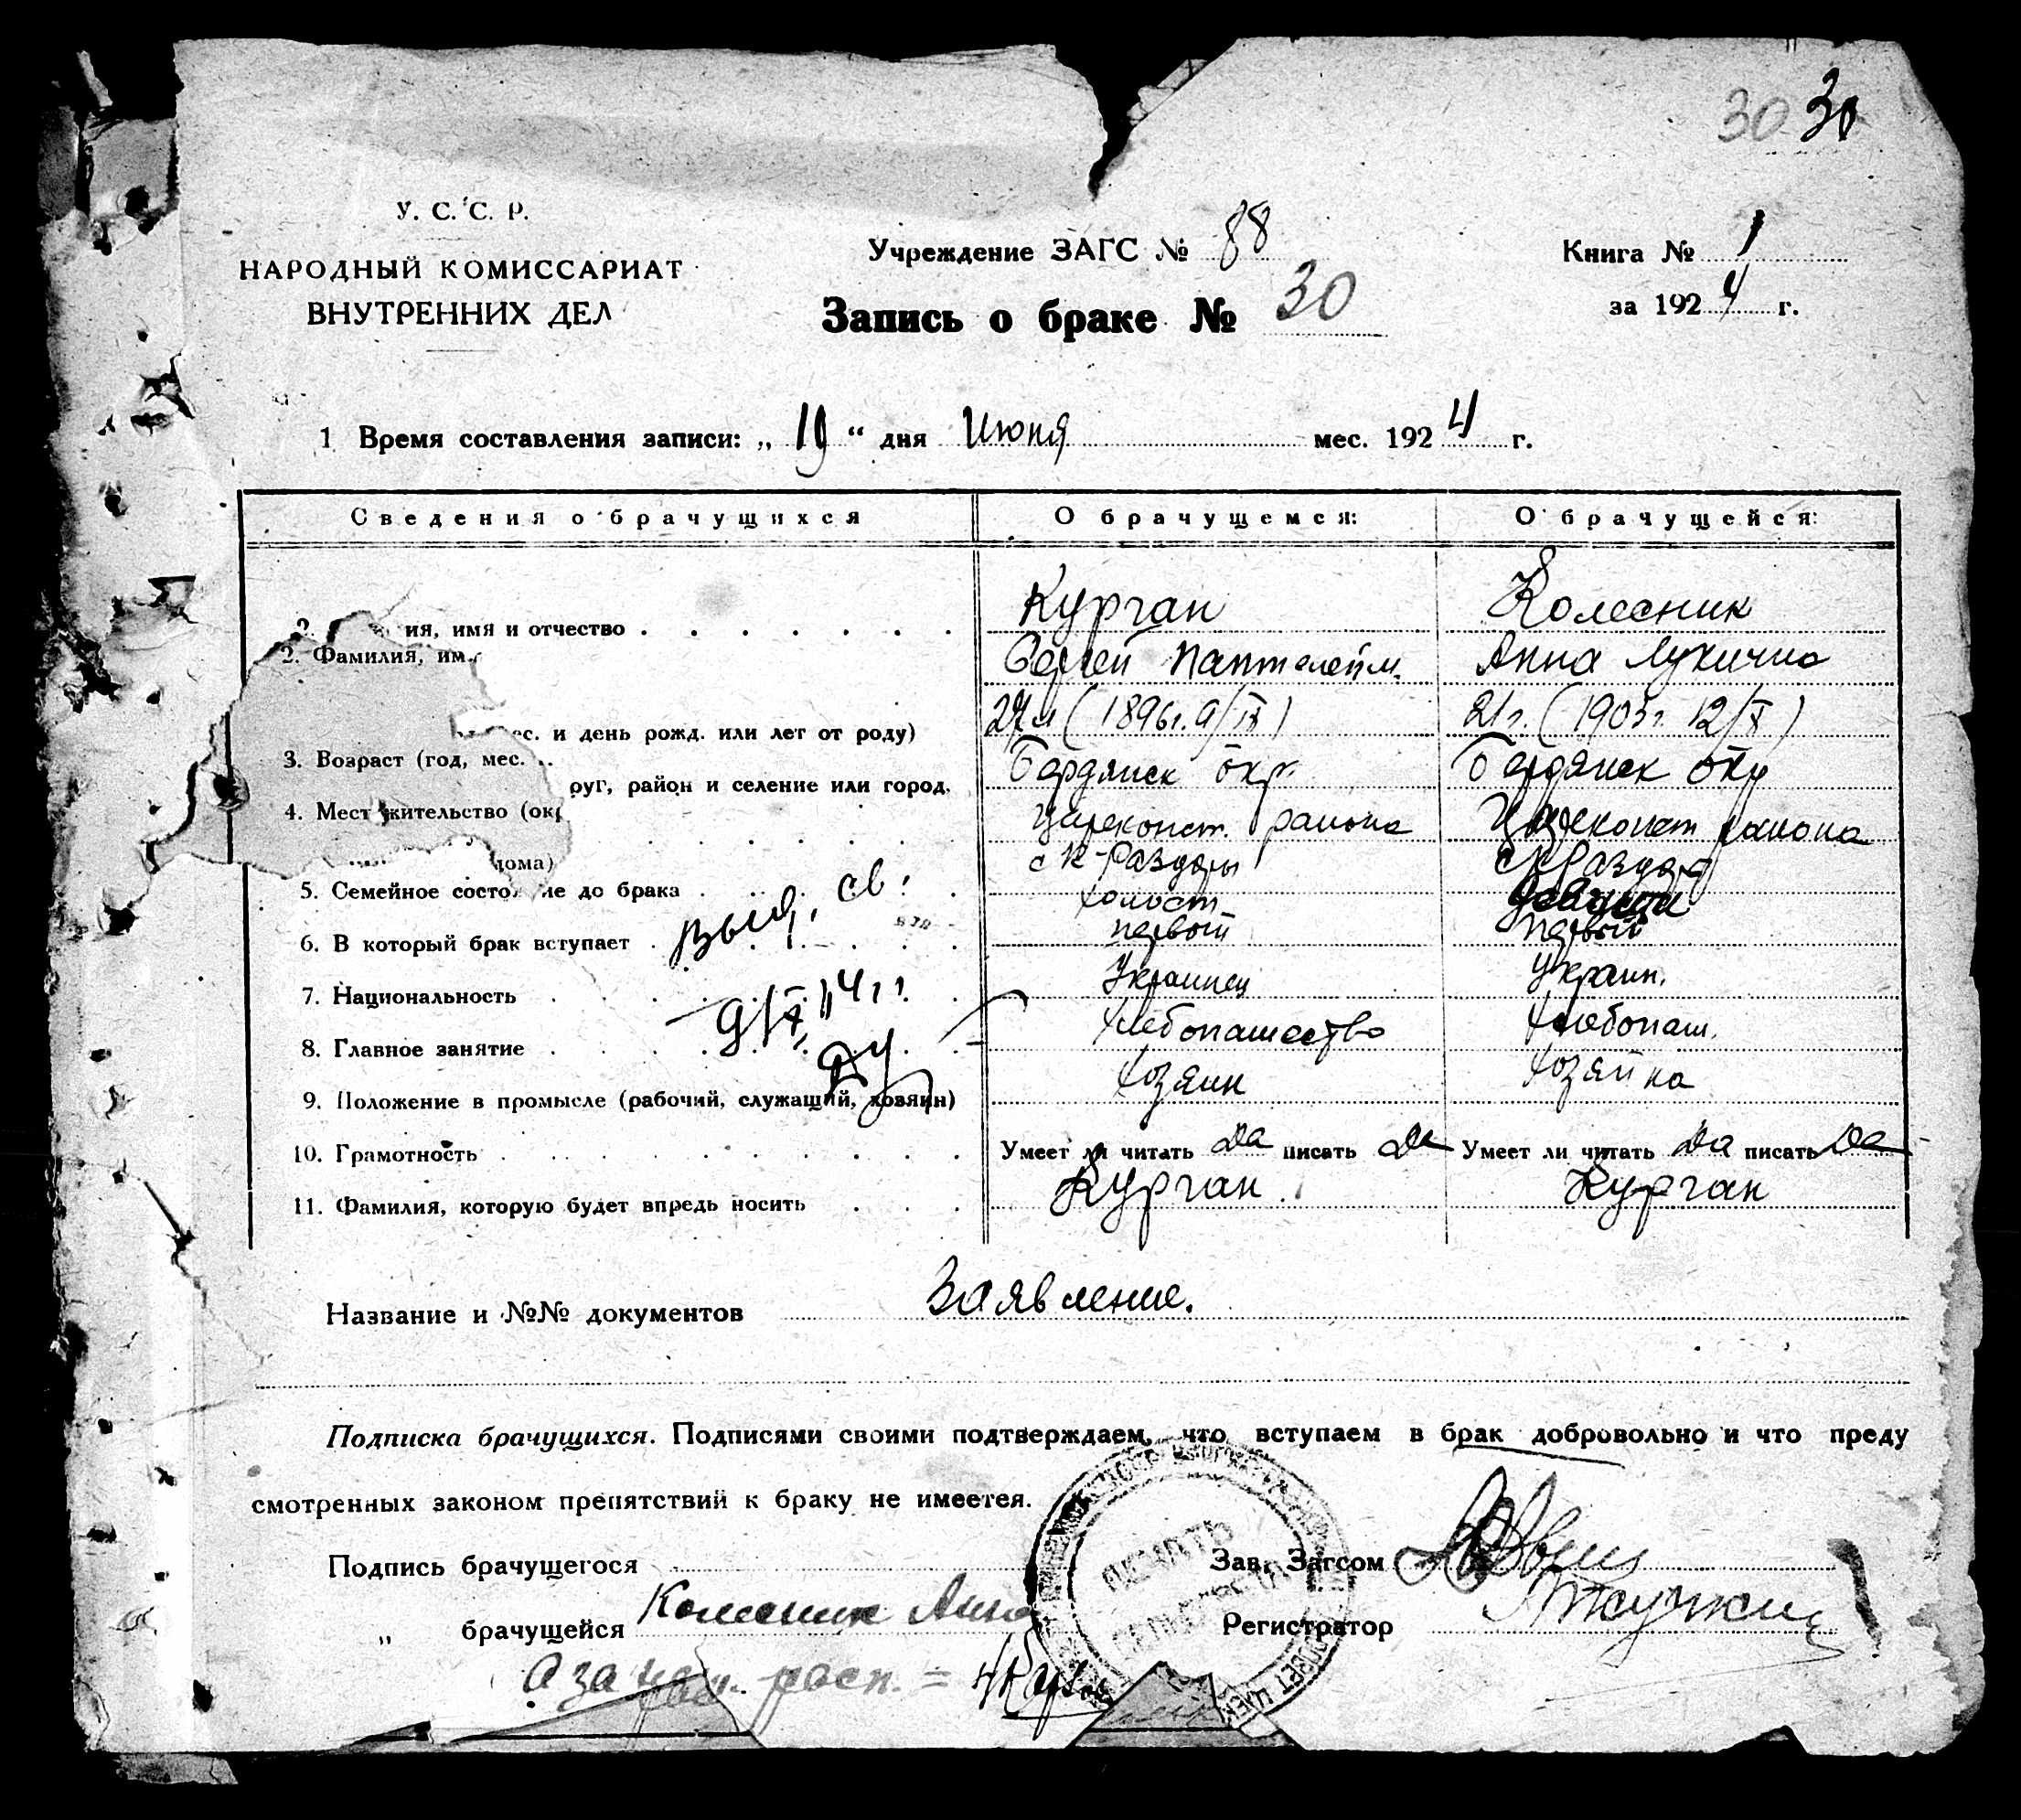 30 30
У. С. С. Р.
НАРОДНЫЙ КОМИССАРИАТ
ВНУТРЕННИХ ДЕЛ
Учреждение ЗАГС № 88
Запись о браке № 30
Книга № 1
за 1924 г.
1 Время составления записи: „ 19 “ дня Июня мес. 1924 г.
Сведения о брачущихся О брачущемся: О брачущейся:
2. ия, имя и отчество Курган Колесник
2. Фамилия, им Сергей Пантелейм. Анна Лукична
ес. и день рожд. или лет от роду) 27 л (1896 г. 9/IX) 21 г. (1903 г. 12/X)
3. Возраст (год, мес. Бердянск окр. Бердянск окр
руг, район и селение или город,
4. Мест жительство (окр Цареконст. района Цареконст района
дома) с К-Раздоры с К Раздоры
5. Семейное состо ие до брака холост девица
6. В который брак вступает первый первый
Выд. св.
7. Национальность Украинец Украин.
8. Главное занятие Хлебопашество Хлебопаш.
9. Положение в промысле (рабочий, служащий, хозяин) Хозяин Хозяйка
10. Грамотность Умеет ли читать Да писать Да Умеет ли читать Да писать Да
11. Фамилия, которую будет впредь носить Курган Курган
Название и №№ документов Заявление.
Подписка брачущихся. Подписями своими подтверждаем, что вступаем в брак добровольно и что преду
смотренных законом препятствий к браку не имеется.
Подпись брачущегося
Зав. Загсом
„ брачущейся Колесник Анна
Регистратор
а за расп. =